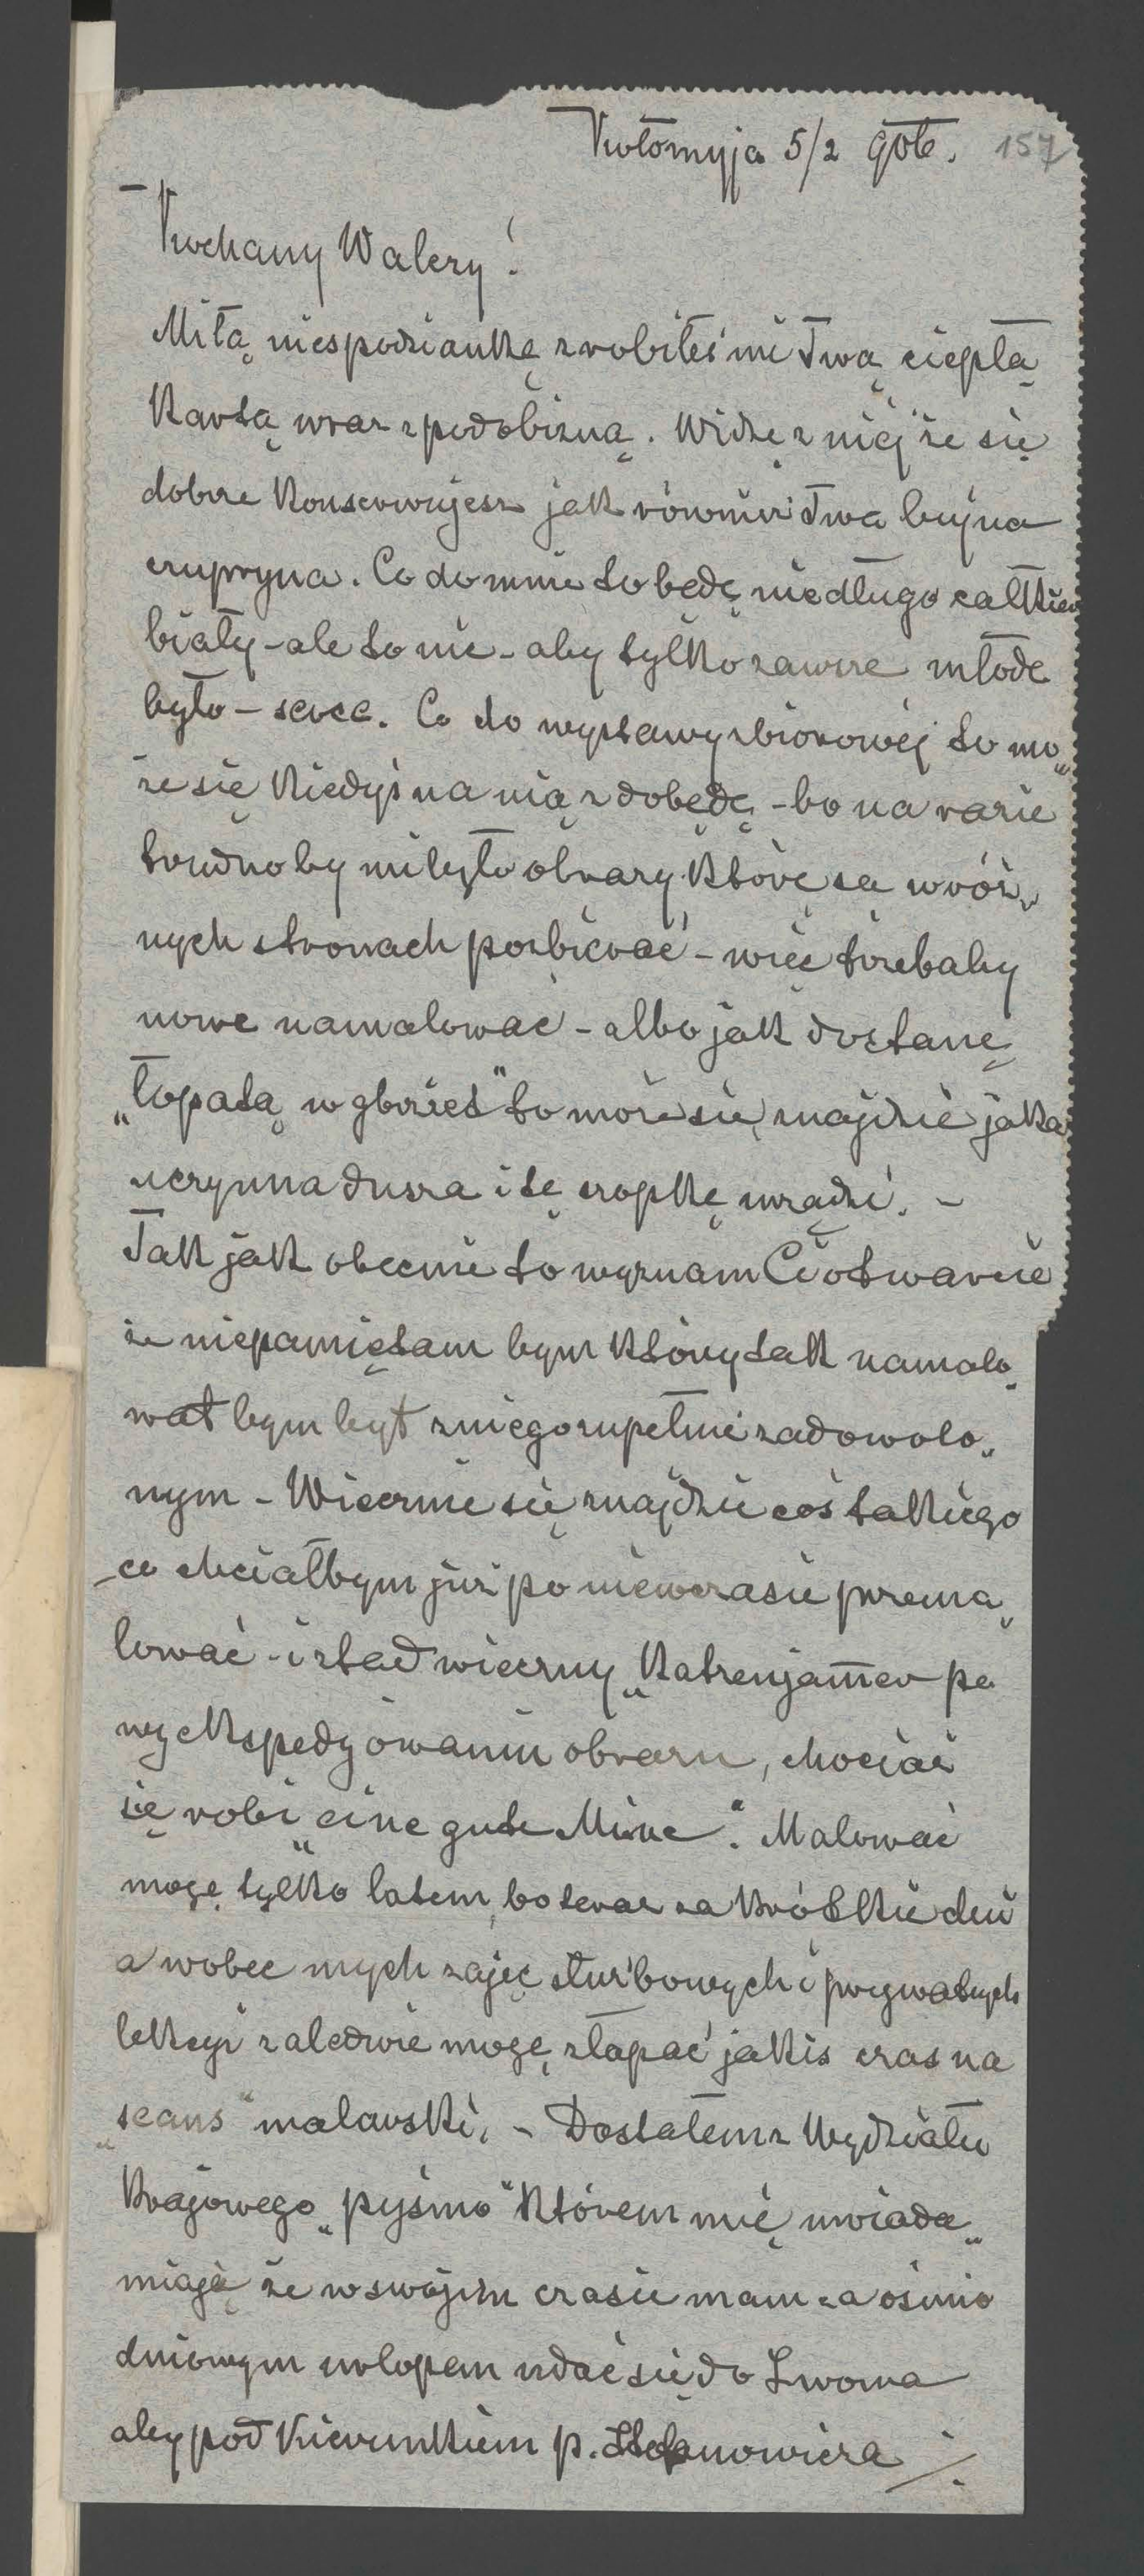 Kołomyja 5/2 904. 157
Kochany Walery!
Miłą niespodziankę zrobiłeś mi Twą ciepłą
Kartą wraz z podobizną. Widzę z niej że się
dobrze konserwujesz jak również Twa bujna
czupryna. Co do mnie to będę niedługo całkiem
biały - ale to nic - aby tylko zawsze młode
było - serce. Co do wystawy zbiorowej to mo„
że się kiedyś na nią zdobędę - bo na razie
trudno by mi było obrazy które są w róż„
nych stronach pozbierać - więc trzebaby
nowe namalować - albo jak dostanę
„łopatą w grzbiet" to może się znajdzie jaka
uczynna dusza i tę szopkę urządzi. -
Tak jak obecnie to wyznam Ci otwarcie
że niepamiętam bym który tak namalo„
wał bym był z niego zupełnie zadowolo„
nym - Wiecznie się znajdzie coś takiego
co chciałbym już po niewczasie przema„
lować - i stąd wieczny „Katzenjam̅er po
wyekspedyowaniu obrazu, chociaż
się robi „eine gute Mine". Malować
mogę tylko latem, bo teraz za krótkie dni
a wobec mych zajęć służbowych i prywatnych
lekcyi zaledwie mogę złapać jakis czas na
„seans" malarski. - Dostałem z Wydziału
Krajowego „pysmo" którem mię uwiada„
miają że w swojim czasie mam za ośmio
dniowym urlopem udać się do Lwowa
aby pod kierunkiem p. Stefanowicza ./.